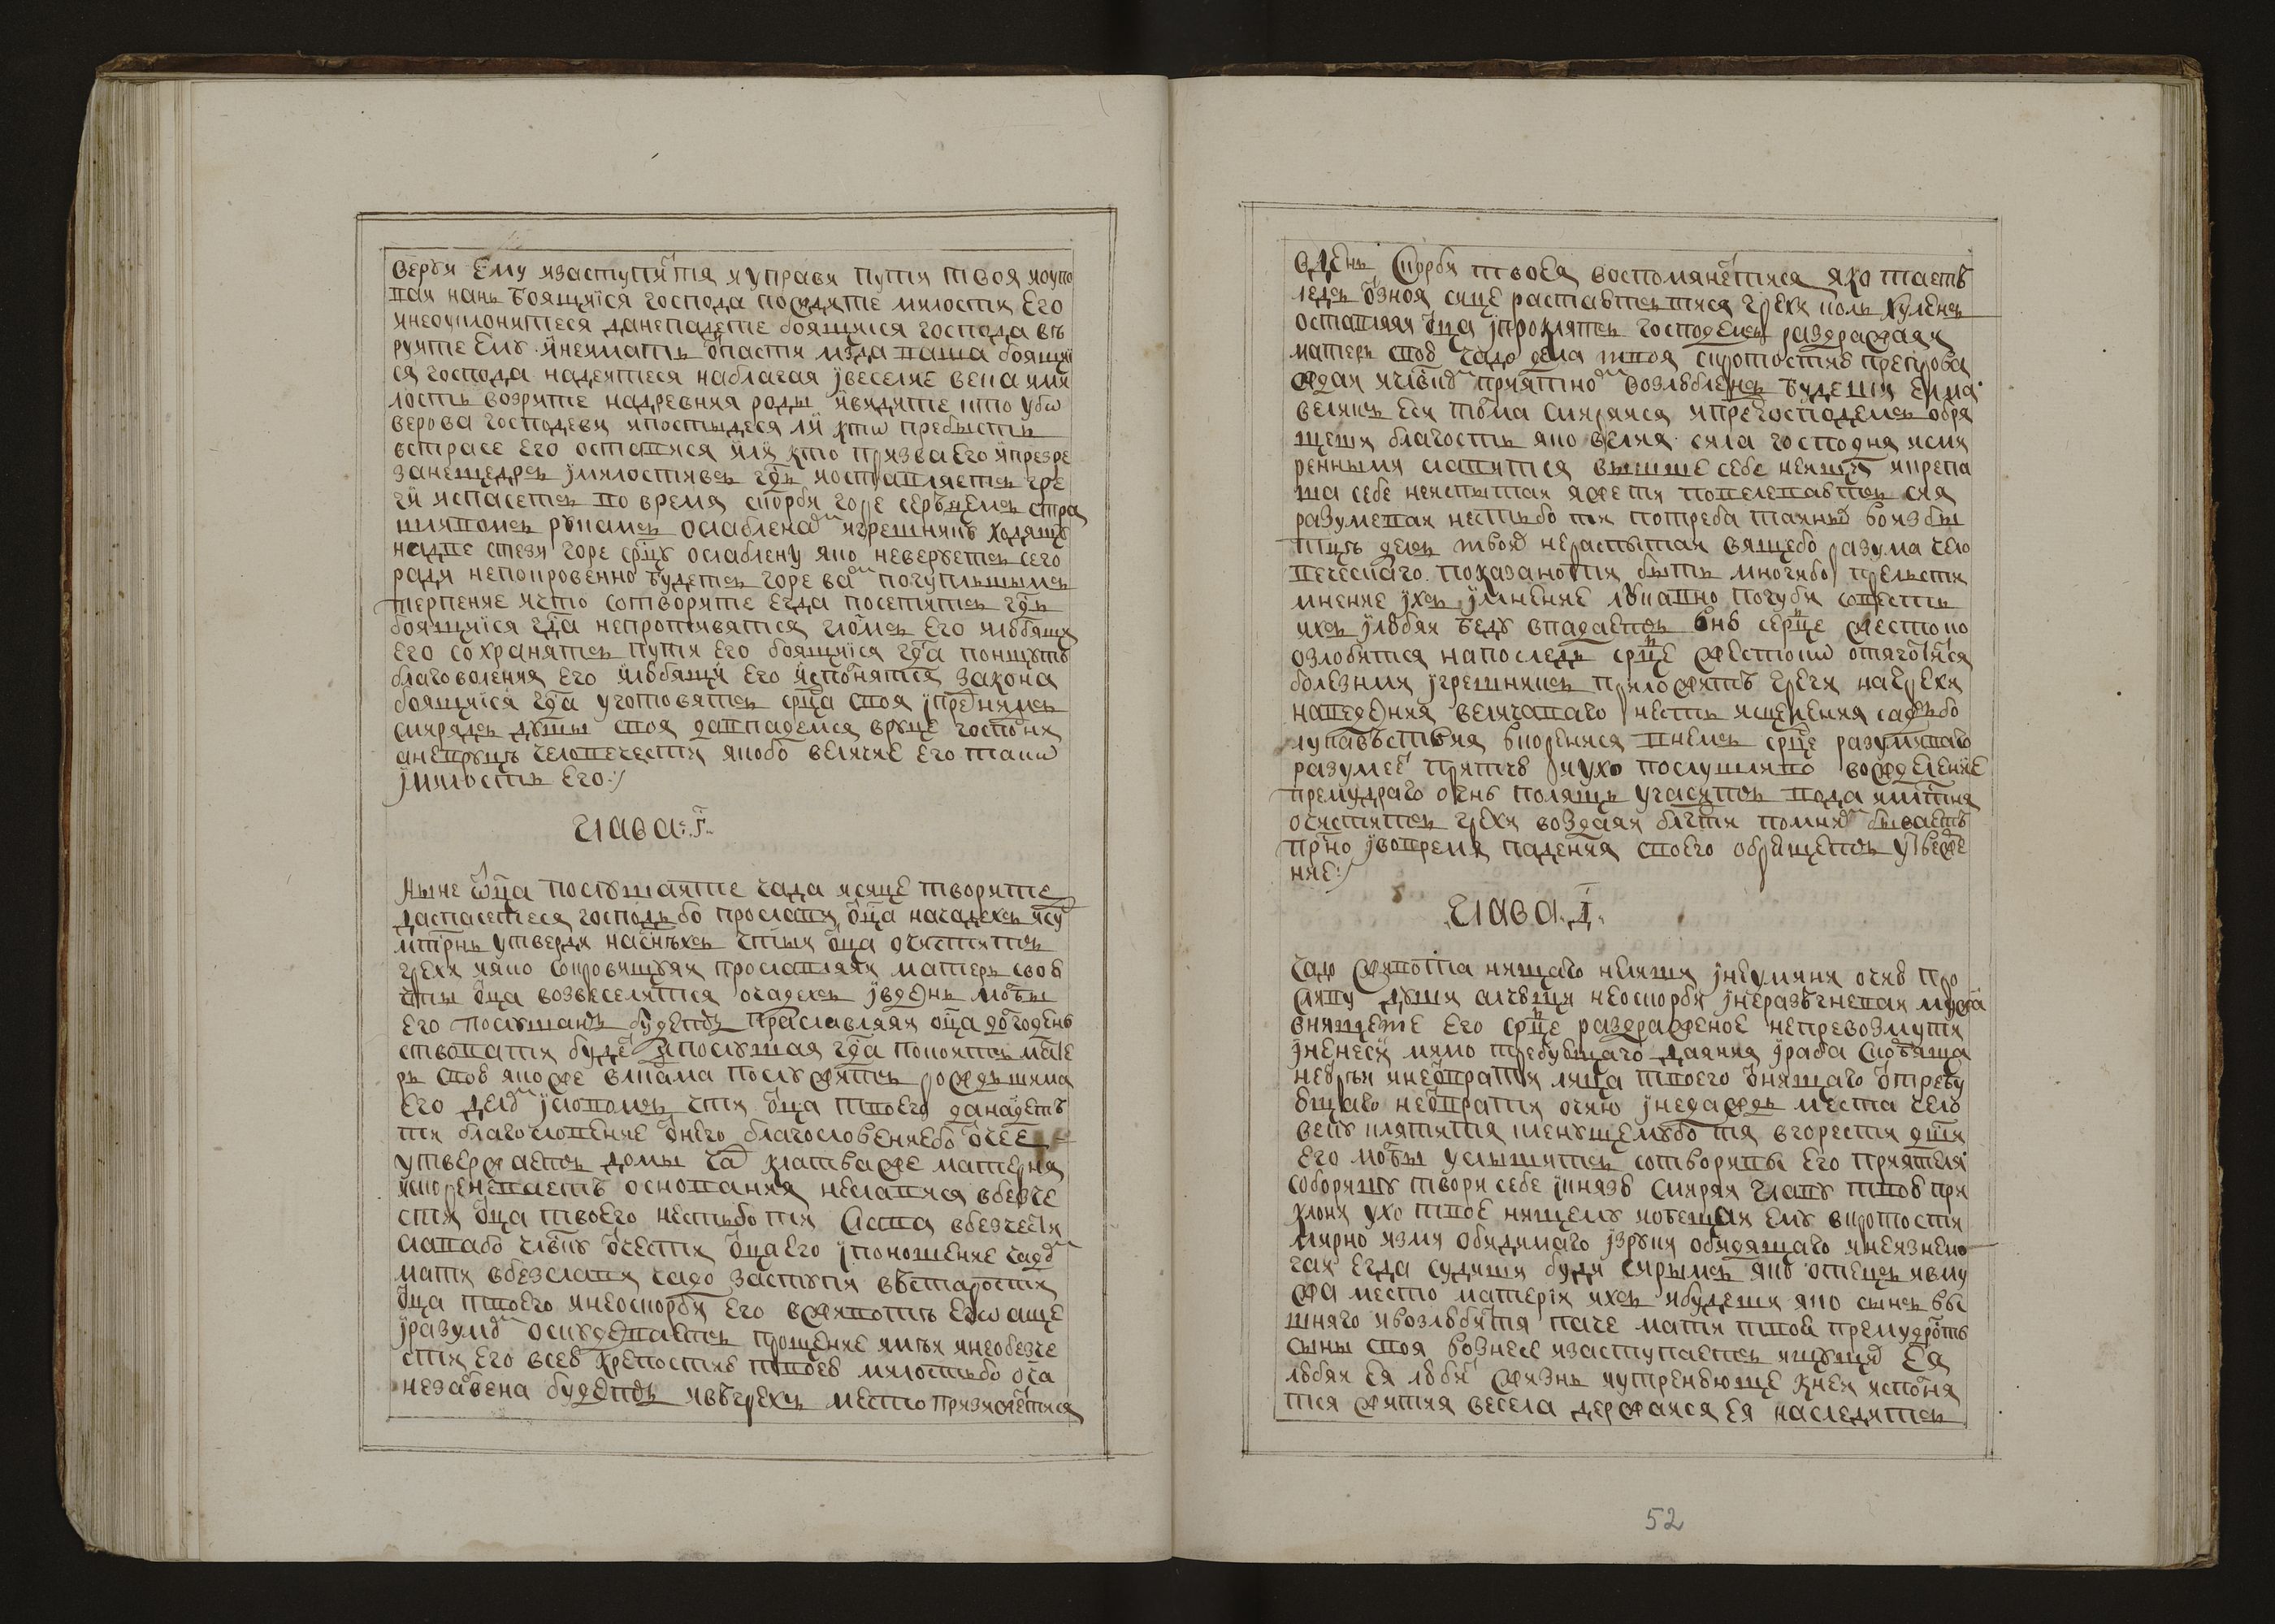 веруи ему изаступитъ тя иуправи пути твоя иоупо
ваи нань боящиїся господа пождите милости его
инеоуклонитеся данепадете боящиїся господа вѣ
руите ему инеимать ѿпасти мзда ваша боящиї
ся господа надеитеся наблагая ївеселие века ими
лость возрите надревния роды ивидите кто убѡ
верова господеви ипостыдеся ли ктѡ пребысть
встрасе его оставися или кто призва его ипрезре
занещедръ їмилостивъ гдь иоставляетъ гре
хи испасетъ во время скорби горе сердцемъ стра
шливомъ рукамъ ослабленымъ игрешнику ходящу
надве стези горе срцу ослаблену яко неверуетъ сего
ради непокровенно будетъ горе вамъ погубльшымъ
терпение ичто сотворите егда посетитъ гдь
боящиїся гда непротивятся гломъ его илюбящи
его сохранятъ пути его боящиїся гда поищутъ
благоволения его илюбящи его исполнятся закона
боящиїся гда уготовятъ срца своя їпреднимъ
смирядъ душы своя давпадемся вруце господни
аневруцѣ человечести якобо величие его такѡ
їмилость его:/
глава: г҃.
Ныне ѿца послушаите чада исице творите
даспасетеся господь бо прослави ѿца начадехъ исуд
мтрнь утверди насынѣхъ чтыи ѿца очиститъ
грехи ияко сокровищуяи прославляяи матерь свою
чтыи ѿца возвеселится очадехъ ївдень молбы
его послушанъ будетъ праславляяи оца долгоден
ствовати будетъ ипослушая гда покоитъ мате
рь свою якоже владыкама послужитъ рождьшима
его деломъ їсловомъ чти ѿца твоего данаидетъ
ти благословение ѿнего благословениебо ѿчее
утвержаетъ домы чадъ клятваже матерня
искореневаетъ основания неславися вбезче
стии ѿца твоего нестьбо ти слава вбезчестия
славабо члвку ѿчести ѿца его їпоношение чадомъ
мати вбезславии чадо заступи вѣстарости
ѿца твоего инеоскорби его вживотѣ егѡ аще
їразумомъ оскудеваетъ прощение имѣи инеобезче
сти его всею крепостию твоею милостьбо оча
незабвена будетъ ивѣгрехъ место призиждетися
вдень скорби твоея воспомянется яко таетъ
ледъ ѿзноя сице растаютъ тися греси коль хуленъ
оставляяи ѿца їпроклятъ господемъ раздражаяи
матерь свою чадо дела твоя скротостию препрова
ждаи ичлвкомъ приятномъ возлюбленъ будеши елма
великъ еси толма смиряися ипредгосподемъ обря
щеши благость яко велия сила господня исми
ренными славится вышше себе неищи икрепля
ша себе неиспытаи яжети повеленаютъ сия
разумеваи нестьбо ти потреба таиныхъ боизбы
тцѣ делъ твоихъ нераспытаи вящебо разума чело
веческаго показаноти быть многихбо прельсти
мнение їхъ їмнение лукавно погуби совесть
ихъ їлюбяи беду впадаетъ вню сердце жестоко
озлобится напоследъ срдце жестокѡ отяготится
болезнми їгрешникъ приложитъ грехи нагрехи
наведения величаваго несть исцеления садъбо
лукавьствия вкоренися внемъ срдце разумиваго
разумеетъ притчю иухо послушливо вожделение
премудраго огнь полящъ угаситъ вода имлтыня
очиститъ грехи воздаяи блгти помнимъ бываетъ
прно їво время падения своего обрящетъ утверже
ние:/
глава. д҃.
чадо живота нищаго нелиши їнеумини очию про
сливу душу алчющи неоскорби їнеразгневаи мужа
внищете его срдце раздраженое непревозмути
їненеси мимо требующаго даяния їраба скорбяща
неѿрѣи инеѿврати лица твоего ѿнищаго ѿтребу
ющаго неѿврати очию їнедаждь места чело
веку клятися кленущемубо тя вгорести дши
его молбы услышитъ сотворивы его приятеля
соборищу твори себе їкнязю смиряи главу твою при
клони ухо твое нищему иотвещаи ему вкротости
мирно изми обидимаго їзруки обидящаго инеизнемо
гаи егда судиши буди сирымъ яко отецъ ивму
жа место матерїи ихъ ибудеши яко сынъ вы
шняго ивозлюбитъ тя паче мати твоя премудрость
сыны своя вознесе изаступаетъ ищущихъ ея
любяи ея любитъ жизнь иутренююще кнеи исполня
тся жития весела держаися ея наследитъ
52